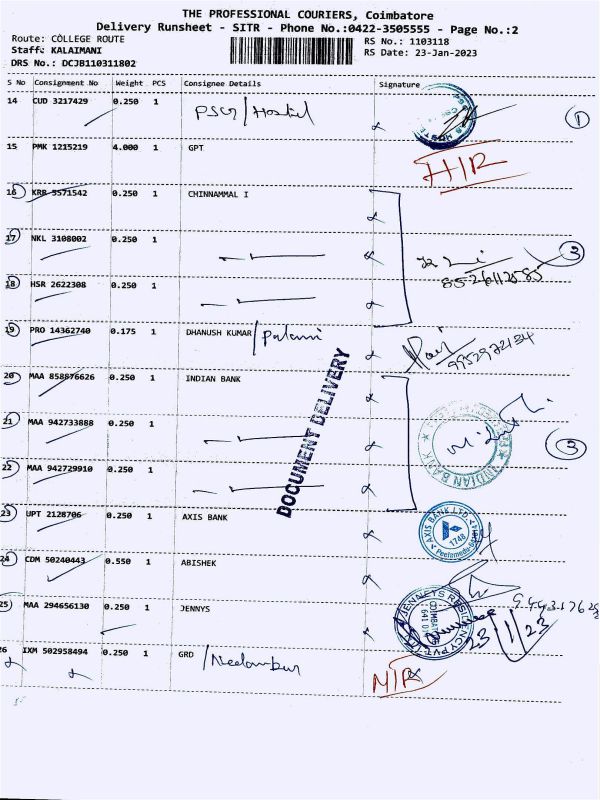 THE PROFESSIONAL COURIERS, Coimbatore
Delivery Runsheet - SITR - Phone No.:0422-3505555 - Page No.:2
Route: COLLEGE ROUTE
RS No.: 1103118
Staff: KALAIMANI
RS Date: 23-Jan-2023
DRS No.: DCJB110311802
S No Consignment No Weight PCS Consignee Details Signature
14 CUD 3217429 0.250 1 PSG/Hostel 1
15 PMK 1215219 4.000 1 GPT
16 KRR 5571542 0.250 1 CHINNAMMAL I
17 NKL 3108002 0.250 1 3
18 HSR 2622308 0.250 1
19 PRO 14362740 0.175 1 DHANUSH KUMAR/Palani
20 MAA 858876626 0.250 1 INDIAN BANK
21 MAA 942733888 0.250 1 INDIAN BANK 3
22 MAA 942729910 0.250 1
DOCUMENT DELIVERY
23 UPT 2128706 0.250 1 AXIS BANK AXIS BANK LTD 1748
24 CDM 50240443 0.550 1 ABISHEK
25 MAA 294656130 0.250 1 JENNYS JENNEYS RESIDENCY PVT 23/1/23
26 IXM 502958494 0.250 1 GRD/Neelambur N/R